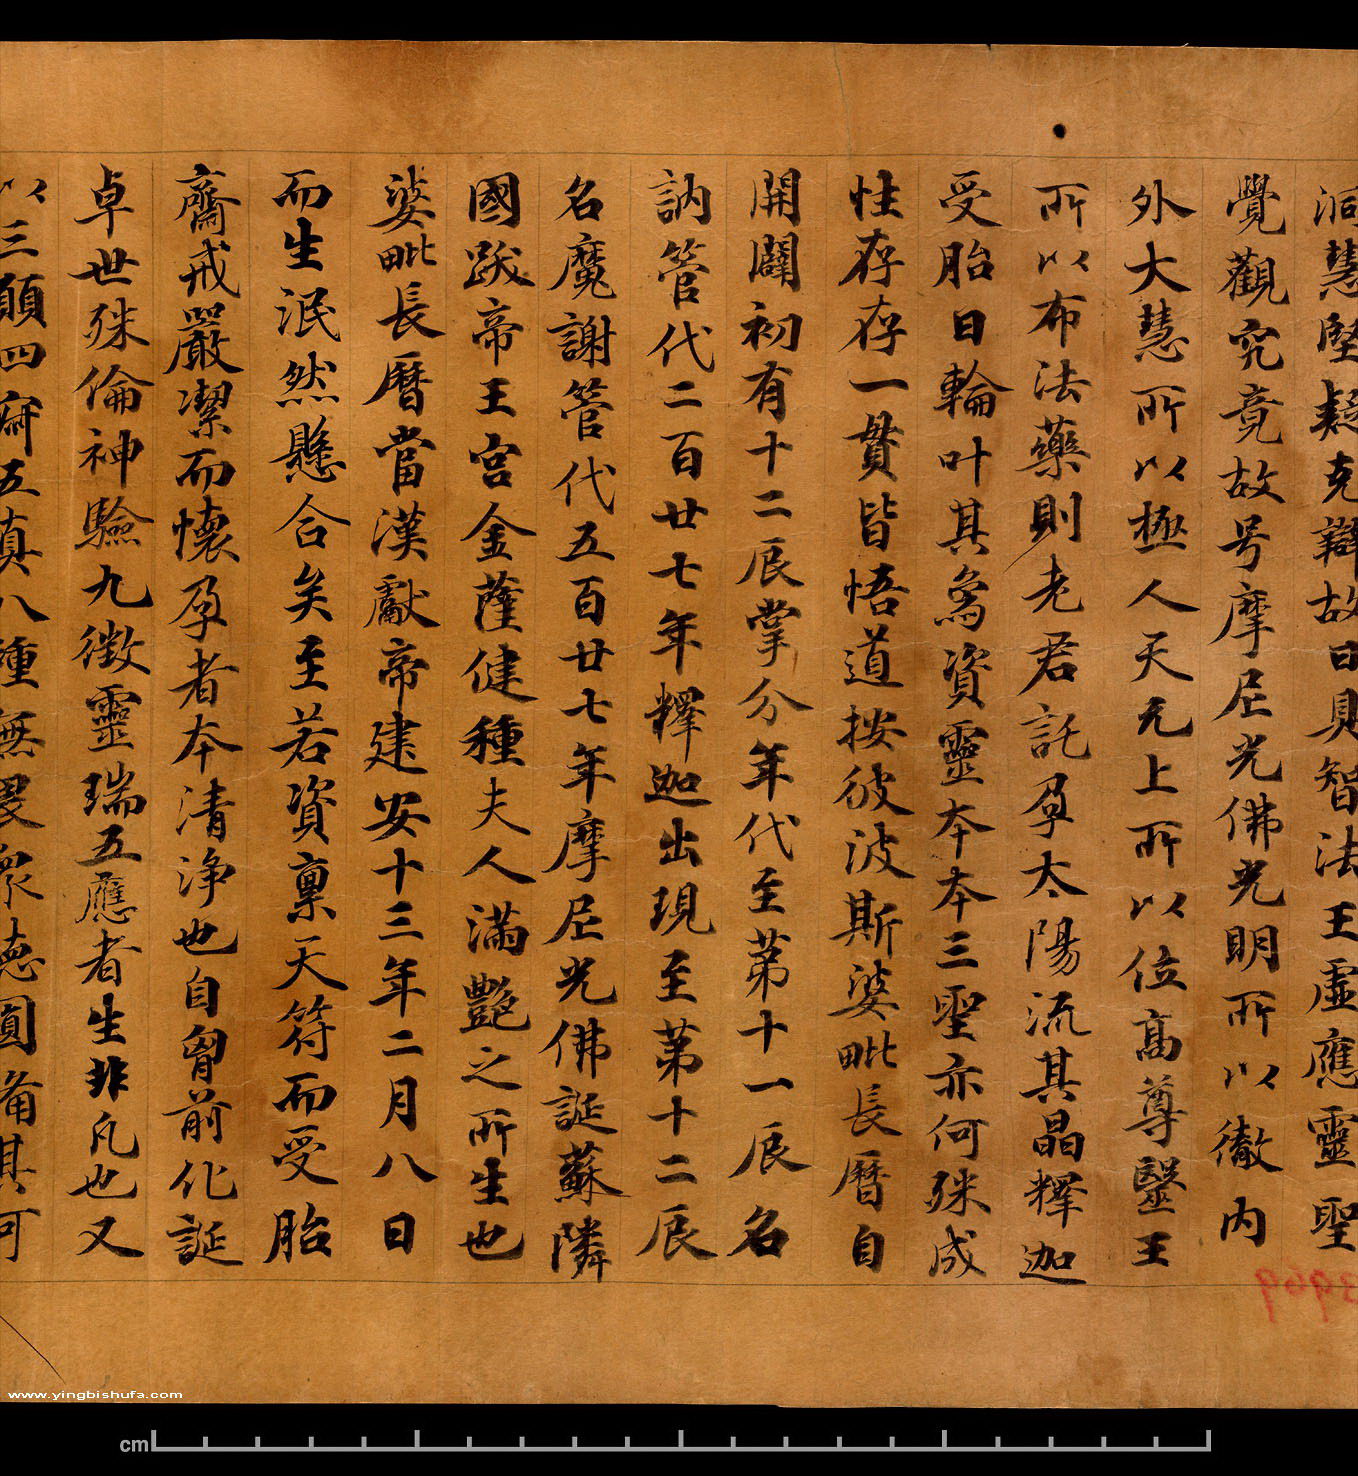 洞慧堅疑克辯故曰具智法王虛應靈聖
覺觀究竟故号摩尼光佛光明所以徹内
外大慧所以極人天无上所以位高尊毉王
所以布法藥則老君託孕太陽流其晶釋迦
受胎日輪叶其象資靈本本三聖亦何殊成
性存存一貫皆悟道按彼波斯婆毗長曆自
開闢初有十二辰掌分年代至苐十一辰名
訥管代二百廿七年釋迦出現至苐十二辰
名魔謝管代五百廿七年摩尼光佛誕蘇隣
國跋帝王宮金薩健種夫人滿艷之所生也
婆毗長曆當漢獻帝建安十三年二月八日
而生泯然懸合矣至若資稟天符而受胎
齋戒嚴潔而懷孕者本清淨也自胷前化誕
卓世殊倫神驗九徵靈瑞五應者生非凡也又
以三願四寂五真八種無畏衆德圓備其可
3969
www.yingbishufa.com
cm